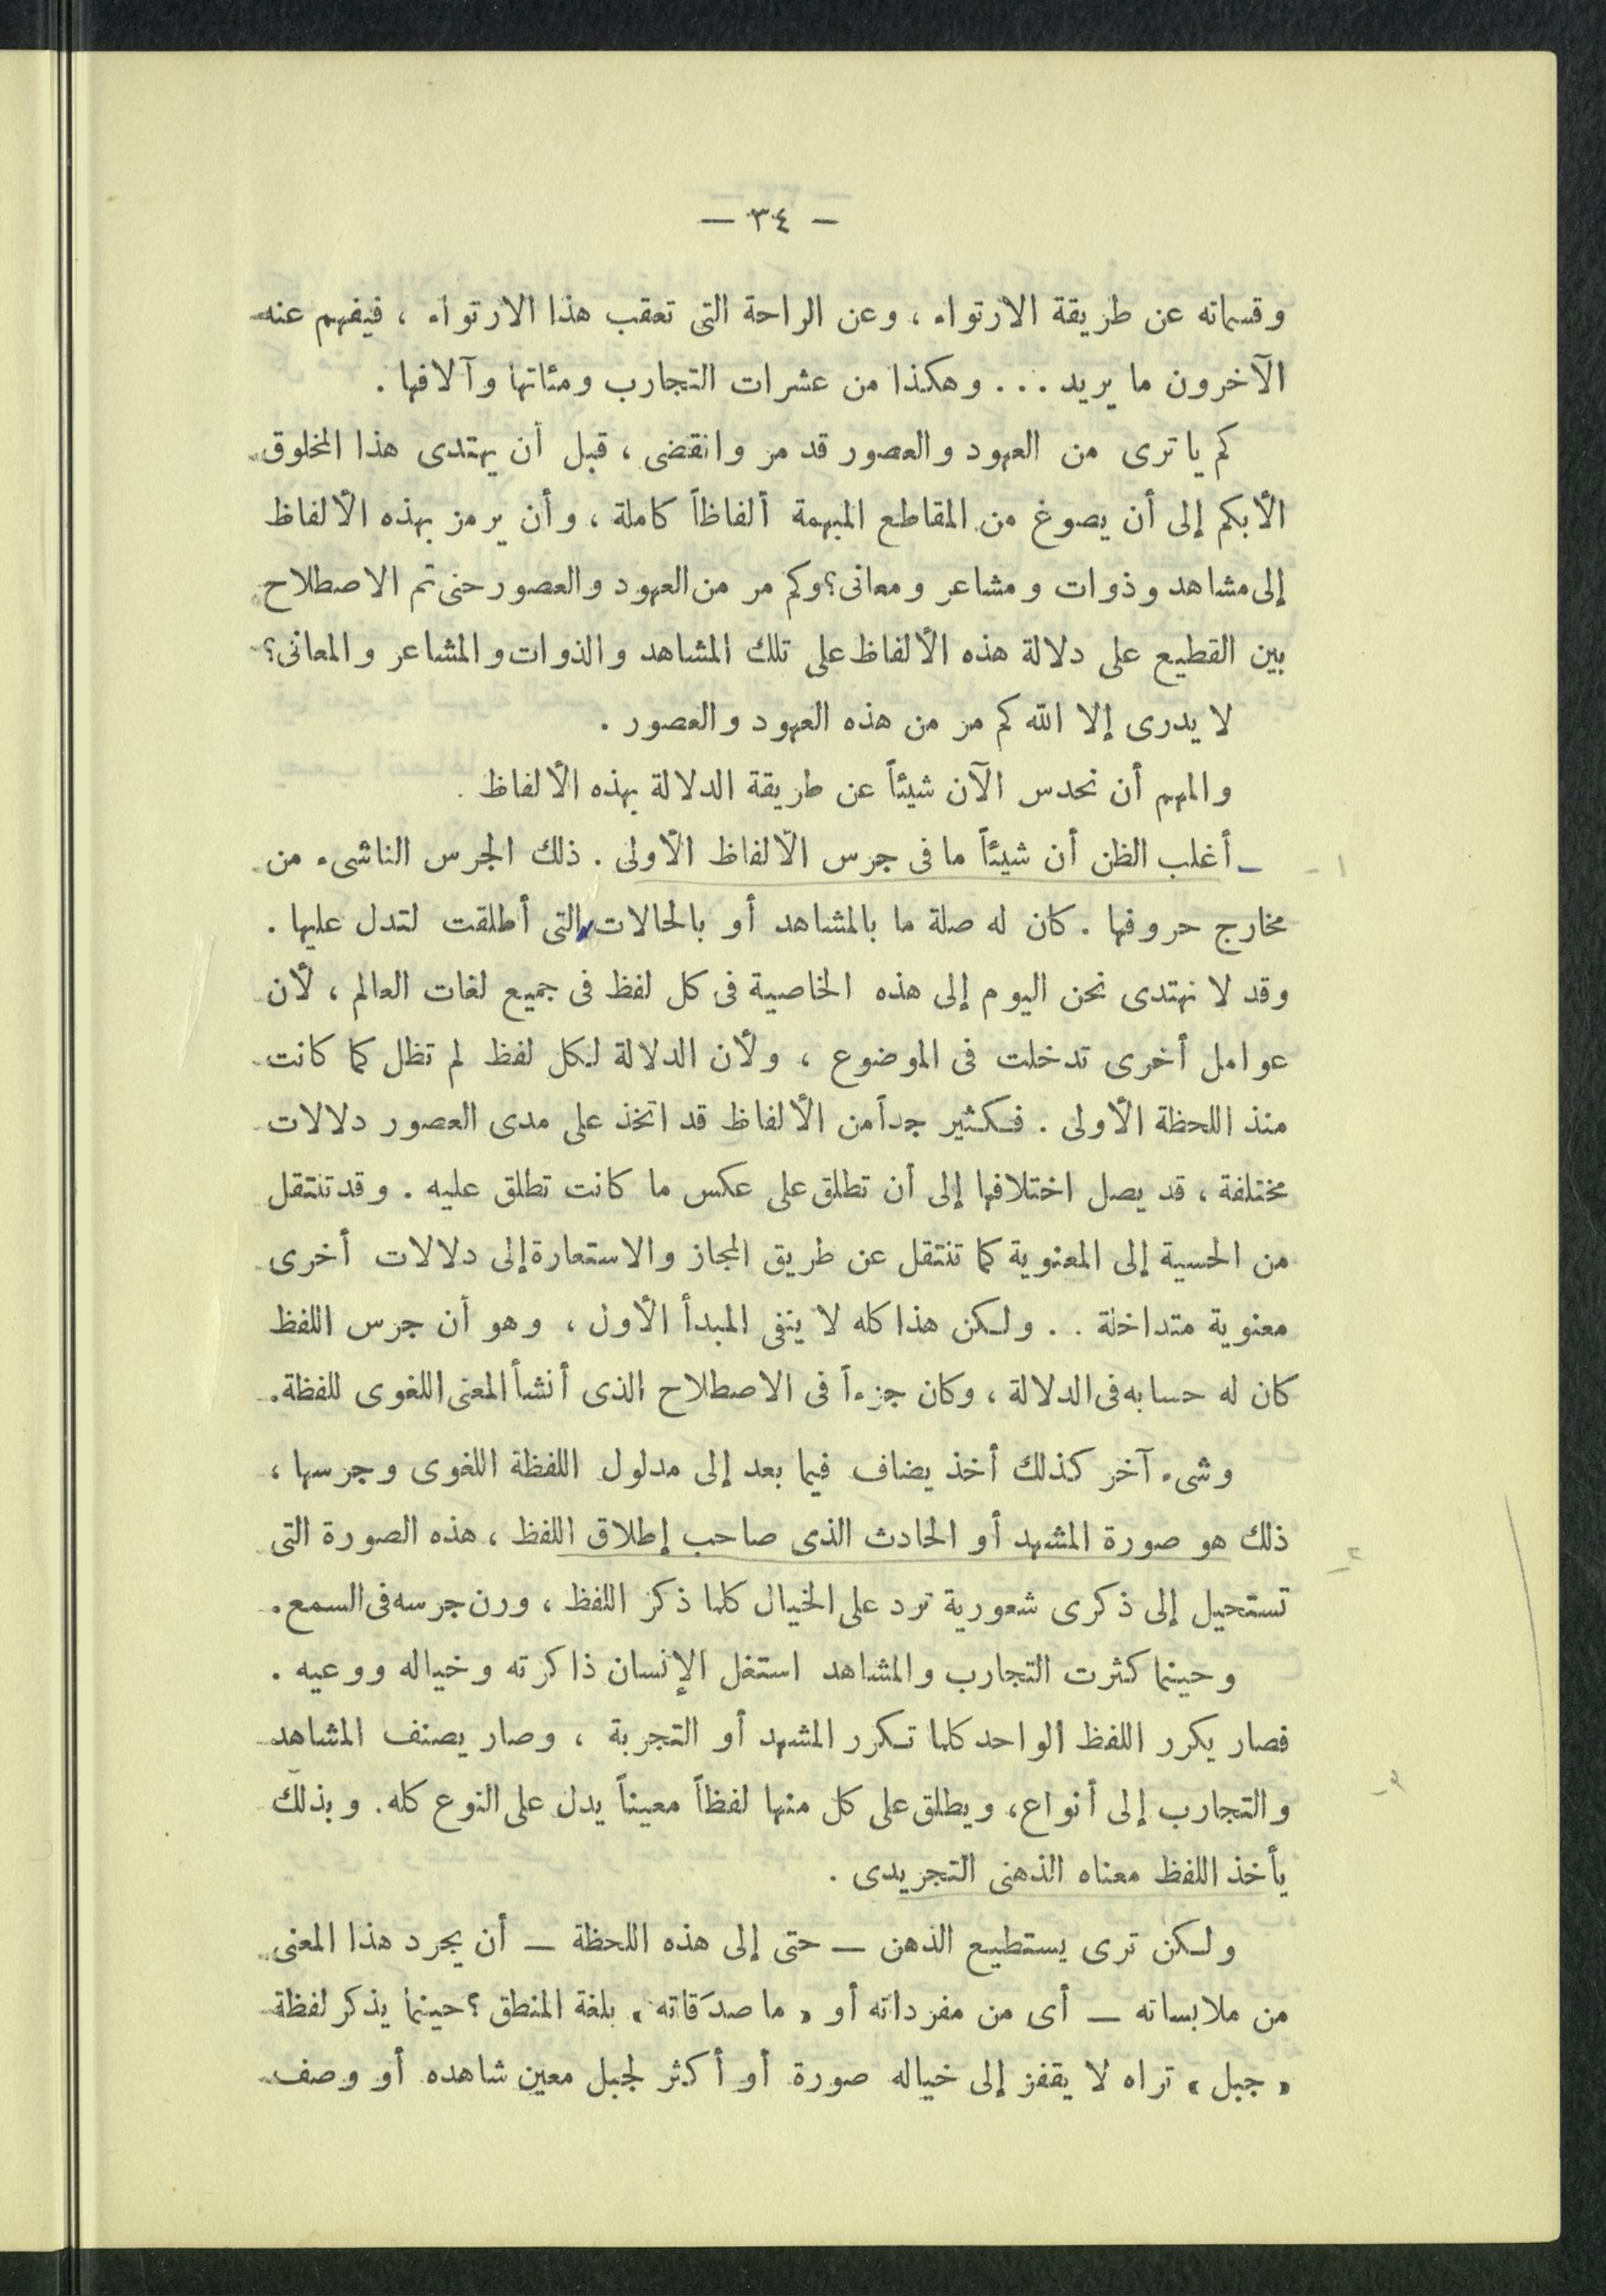 — ٣٤ —
وقسماته عن طريقة الارتواء ، وعن الراحة التى تعقب هذا الارتواء ، فيفهم عنه
الآخرون ما يريد . . . وهكذا من عشرات التجارب ومئاتها وآلافها .
كم يا ترى من العهود والعصور قد مر وانقضى ، قبل أن يهتدى هذا المخلوق
الأبكم إلى أن يصوغ من المقاطع المبهمة ألفاظاً كاملة ، وأن يرمز بهذه الألفاظ
إلى مشاهد وذوات ومشاعر ومعانى؟ وكم مر من العهود والعصور حتى تم الاصطلاح
بين القطيع على دلالة هذه الألفاظ على تلك المشاهد والذوات والمشاعر والمعانى؟
لا يدرى إلا الله كم مر من هذه العهود والعصور .
والمهم أن نحدس الآن شيئاً عن طريقة الدلالة بهذه الألفاظ .
١ - ـ أغلب الظن أن شيئاً ما فى جرس الألفاظ الأولى . ذلك الجرس الناشىء من
مخارج حروفها . كان له صلة ما بالمشاهد أو بالحالات التى أطلقت لتدل عليها .
وقد لا نهتدى نحن اليوم إلى هذه الخاصية فى كل لفظ فى جميع لغات العالم ، لأن
عوامل أخرى تدخلت فى الموضوع ، ولأن الدلالة لكل لفظ لم تظل كما كانت
منذ اللحظة الأولى . فكثير جداً من الألفاظ قد اتخذ على مدى العصور دلالات
مختلفة ، قد يصل اختلافها إلى أن تطلق على عكس ما كانت تطلق عليه . وقد تنتقل
من الحسية إلى المعنوية كما تنتقل عن طريق المجاز والاستعارة إلى دلالات أخرى
معنوية متداخلة . . ولكن هذا كله لا ينفى المبدأ الأول ، وهو أن جرس اللفظ
كان له حسابه فى الدلالة ، وكان جزءاً فى الاصطلاح الذى أنشأ المعنى اللغوى للفظة.
وشىء آخر كذلك أخذ يضاف فيما بعد إلى مدلول اللفظة اللغوى وجرسها ،
٢ - ذلك هو صورة المشهد أو الحادث الذى صاحب إطلاق اللفظ ، هذه الصورة التى
تستحيل إلى ذكرى شعورية ترد على الخيال كلما ذكر اللفظ ، ورن جرسه فى السمع.
وحينما كثرت التجارب والمشاهد استغل الإنسان ذاكرته وخياله ووعيه .
فصار يكرر اللفظ الواحد كلما تكرر المشهد أو التجربة ، وصار يصنف المشاهد
٣ - والتجارب إلى أنواع، ويطلق على كل منها لفظاً معيناً يدل على النوع كله. وبذلك
يأخذ اللفظ معناه الذهنى التجريدى .
ولكن ترى يستطيع الذهن — حتى إلى هذه اللحظة — أن يجرد هذا المعنى
من ملابساته — أى من مفرداته أو « ما صدَقاته » بلغة المنطق ؟ حينما يذكر لفظة
« جبل » تراه لا يقفز إلى خياله صورة أو أكثر لجبل معين شاهده أو وصف